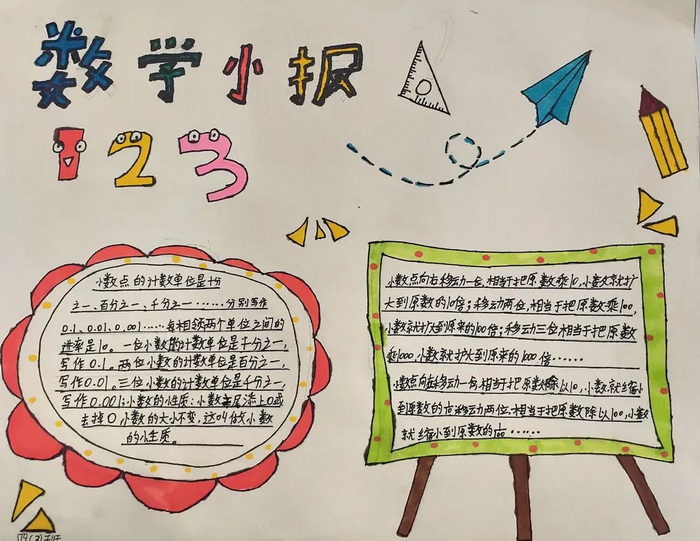 数学小报
123
小数点的计数单位是十份
之一、百分之一、千分之一……分别写作
0.1、0.01、0.001……每相邻两个单位之间的
进率是10。一位小数的计数单位是十分之一,
写作0.1。两位小数的计数单位是百分之一,
写作0.01。三位小数的计数单位是千分之一,
写作0.001;小数的性质:小数末尾添上0或
去掉0小数的大小不变,这叫做小数
的小生质。
小数点向右移动一位,相当于把原数乘10,小数就扩
大到原数的10倍;移动两位,相当于把原数乘100,
小数就扩大到原来的100倍;移动三位相当于把原数
乘1000,小数就扩大到原来的1000倍……
小数点向左移动一位,相当于把原数除以10,小数就缩小
到原数的;移动两位,相当于把原数除以100,小数
就缩小到原数的……